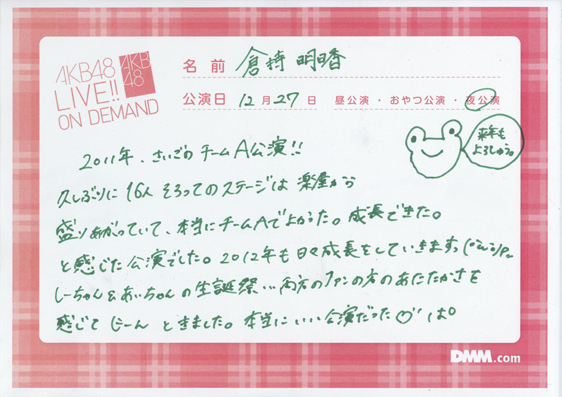 AKB48
LIVE!!
ON DEMAND
AKB
48
名前 倉持 明日香
公演日 12月27日 昼公演・おやつ公演・夜公演
来年も
よろしゅう。
2011年、さいごの チームA公演!!
久しぶりに 16人 そろってのステージは 楽屋から
盛りあがっていて、本当にチームAで良かった。成長できた。
と感じた公演でした。2012年も日々成長をしていきます。
しーちゃん&あいちゃんの生誕祭…両方のファンの方のあたたかさを
感じて じーん ときました。本当にいい公演だった
DMM.com